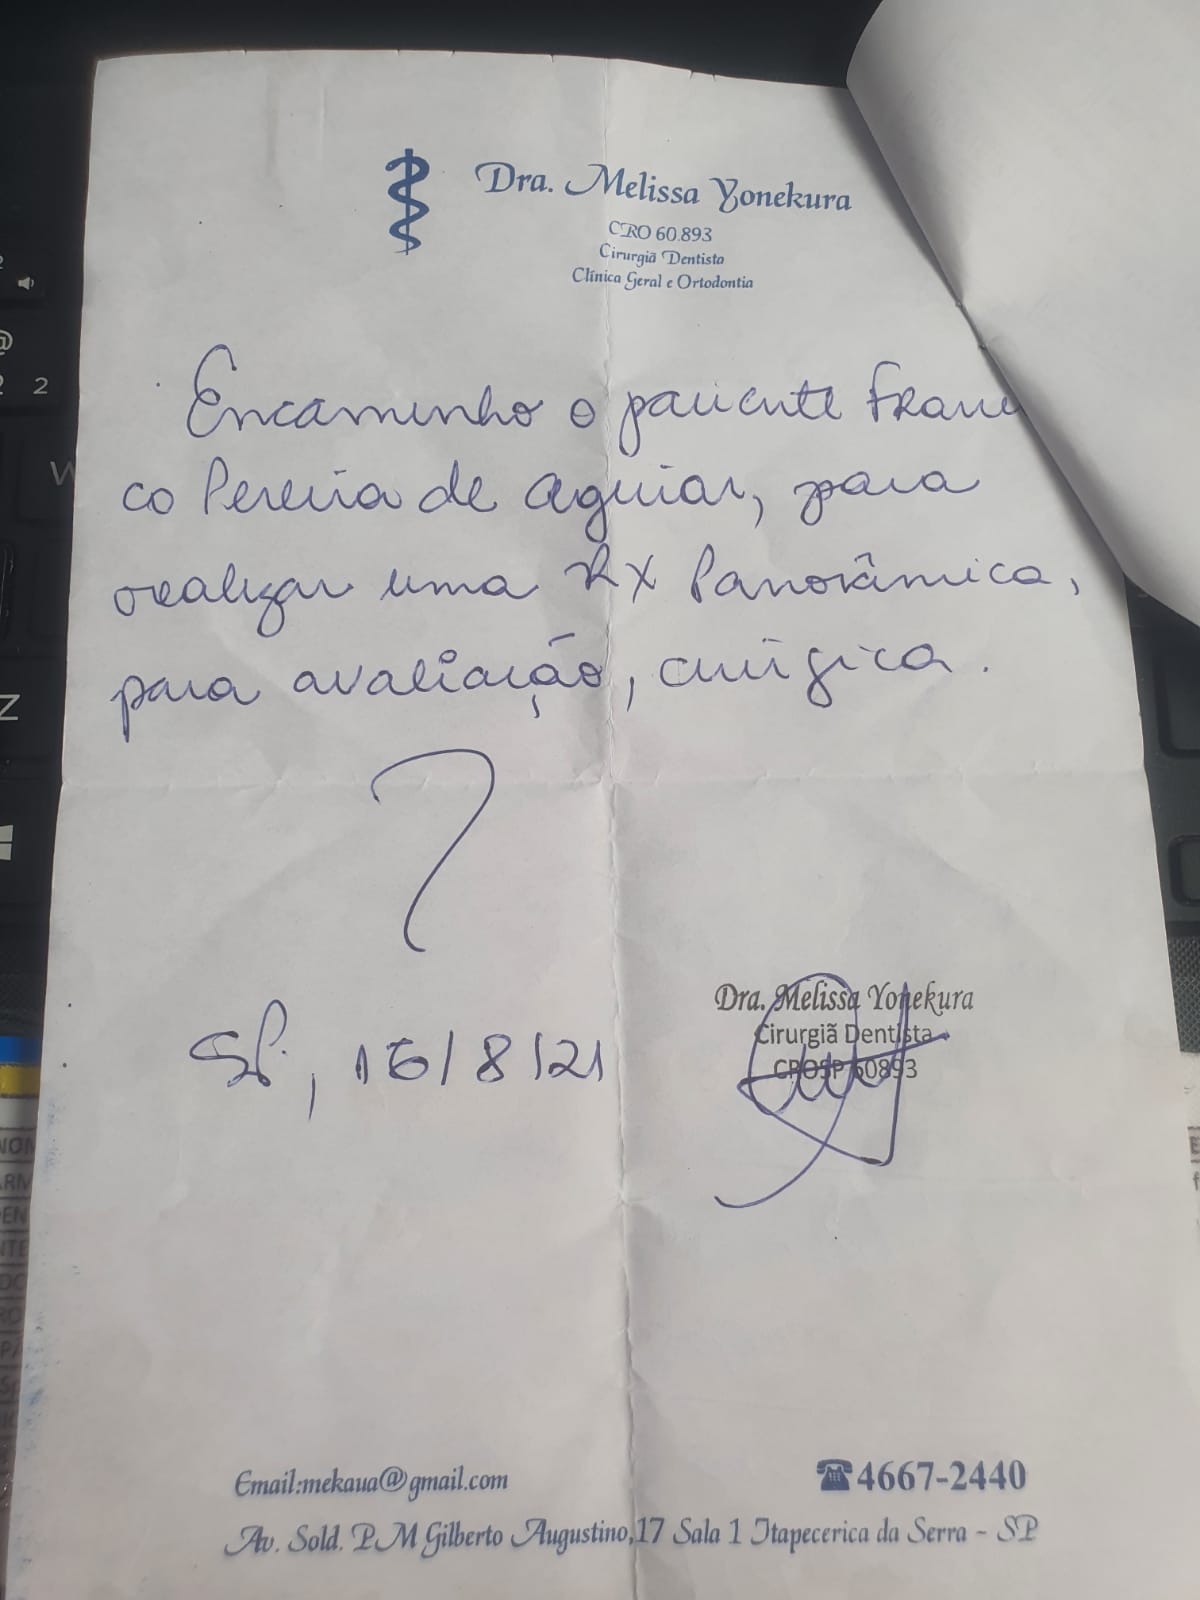 Dra. Melissa Yonekura
CRO 60.893
Cirurgiã Dentista
Clínica Geral e Ortodontia
Encaminho o paciente Franci
co Pereira de Aguiar, para
realizar uma RX Panorâmica,
para avaliação, cirúrgica.
SP, 16/8/21
Dra. Melissa Yonekura
Cirurgiã Dentista
CROSP 60893
Email:mekaua@gmail.com
☎4667-2440
Av. Sold. P.M Gilberto Augustino,17 Sala 1 Itapecerica da Serra - SP